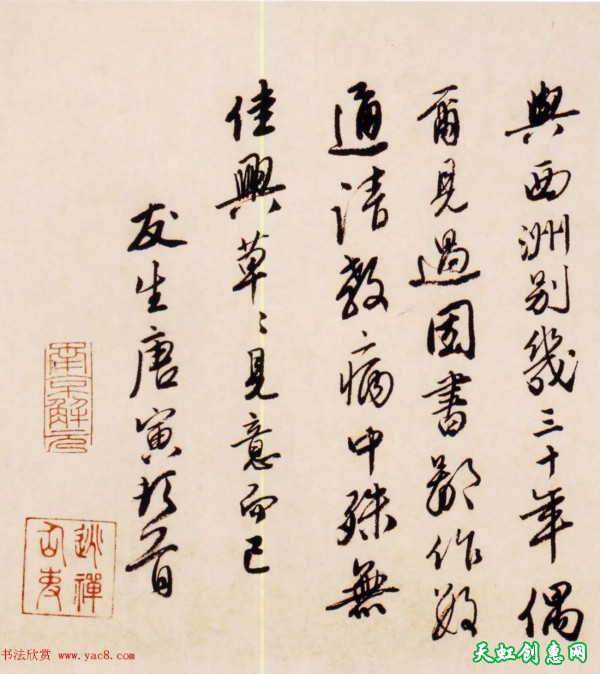 與西洲別幾三十年偶
爾見過因書鄙作數
通請教病中殊無
佳興草〻見意而已
友生唐寅頓首
南京解元
逃禪仙吏
书法欣赏 www.yac8.com
天虹创惠网